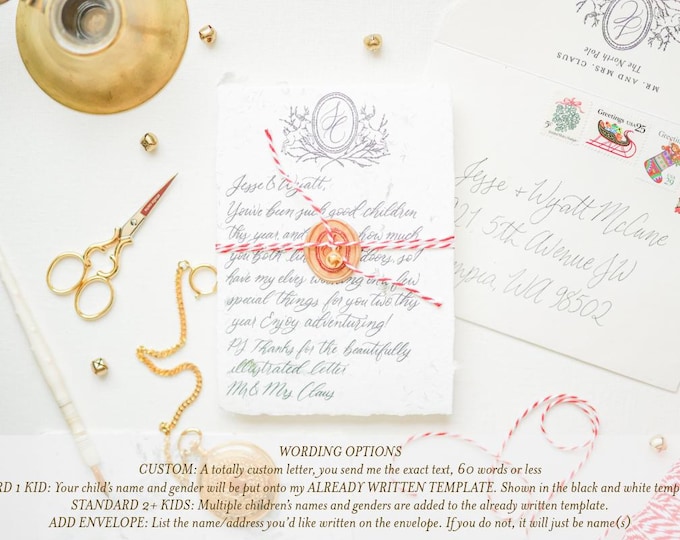 MR. AND MRS. CLAUS
The North Pole
Greetings USA 25
Greetings
Jesse & Wyatt,
You've been such good children
this year and how much
you both doors, so I
have my elves working on a few
special things for you two this
year Enjoy adventuring!
PS Thanks for the beautifully
illustrated letter
Mr & Mrs Claus
Jesse + Wyatt McCune
21 5th Avenue SW
mpia, WA 98502
WORDING OPTIONS
CUSTOM: A totally custom letter, you send me the exact text, 60 words or less
RD 1 KID: Your child's name and gender will be put onto my ALREADY WRITTEN TEMPLATE. Shown in the black and white temp
STANDARD 2+ KIDS: Multiple children's names and genders are added to the already written template.
ADD ENVELOPE: List the name/address you'd like written on the envelope. If you do not, it will just be name(s)